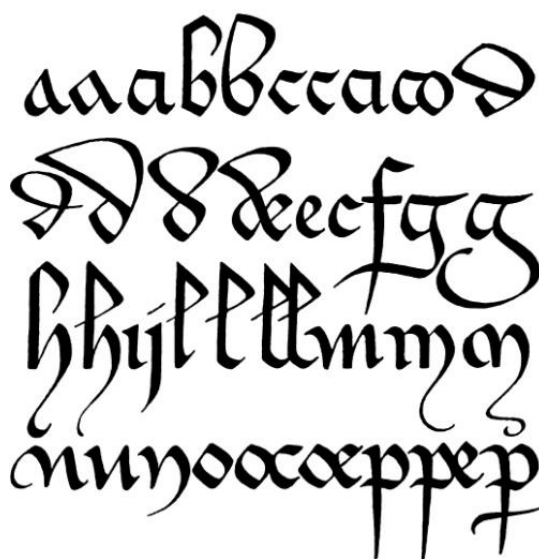 aaabbccacod
ddddeecfgg
hhijllllmmm
nunoocoeppep